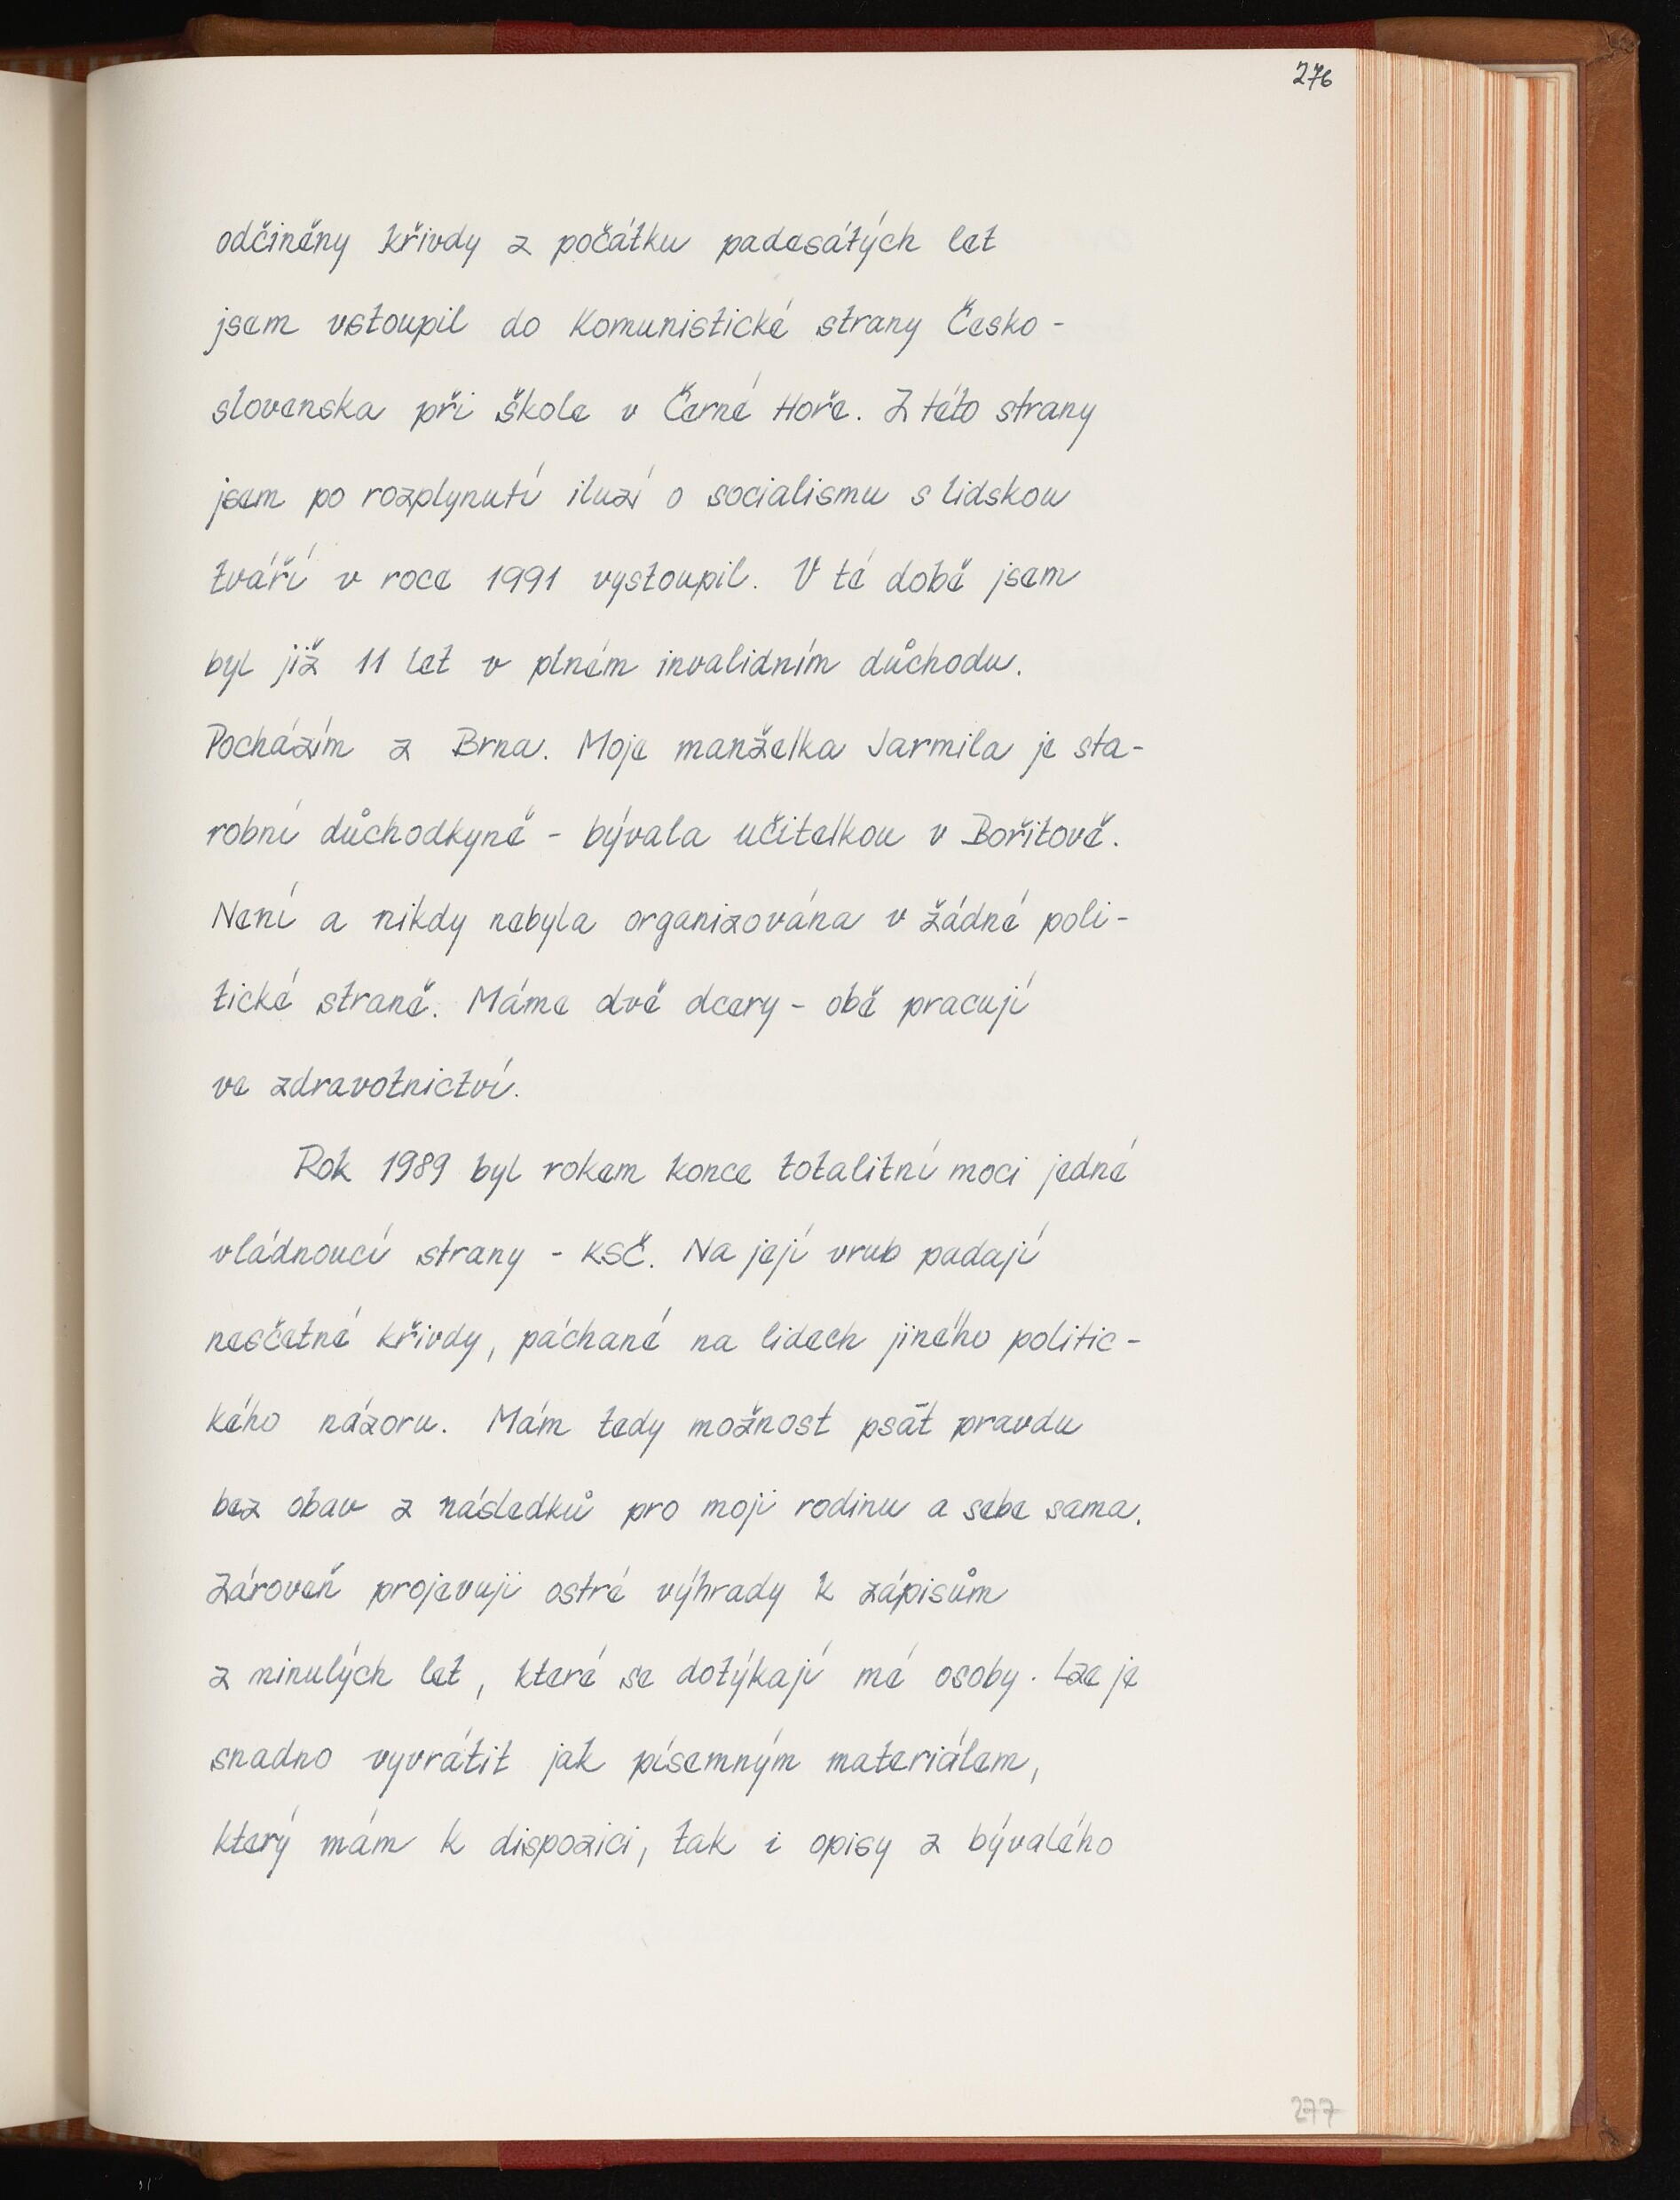 276
odčiněny křivdy z počátku padesátých let
jsem vstoupil do Komunistické strany Česko-
slovenska při škole v Černé Hoře. Z této strany
jsem po rozplynutí iluzí o socialismu s lidskou
tváří v roce 1991 vystoupil. V té době jsem
byl již 11 let v plném invalidním důchodu.
Pocházím z Brna. Moje manželka Jarmila je sta-
robní důchodkyně - bývala učitelkou v Bořitově.
Není a nikdy nebyla organizována v žádné poli-
tické straně. Máme dvě dcery - obě pracují
ve zdravotnictví.
Rok 1989 byl rokem konce totalitní moci jedné
vládnoucí strany - KSČ. Na její vrub padají
nesčetné křivdy, páchané na lidech jiného politic-
kého názoru. Mám tedy možnost psát pravdu
bez obav z následků pro moji rodinu a sebe sama.
Zároveň projevuji ostré výhrady k zápisům
z minulých let, které se dotýkají mé osoby. Lze je
snadno vyvrátit jak písemným materiálem,
který mám k dispozici, tak i opisy z bývalého
277